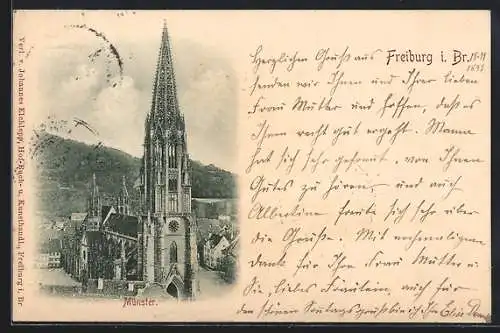 Verl. v. Johannes Elchlepp, Hof-Buch- u. Kunsthandl., Freiburg i. Br.
Münster.
Freiburg i. Br.
Herzlichen Gruß aus
senden wir Ihnen und Ihrer lieben
Frau Mutter und hoffen, daß es
Ihnen recht gut ergeht. Mama
hat sich sehr gefreut, von Ihnen
Gutes zu hören, und auch
Albertine freute sich sehr über
die Grüße. Mit nochmaligem
Dank für Ihre Frau Mutter u
Sie, liebes Fräulein, auch für
den schönen Sonntagsgruß bin ich Ihre